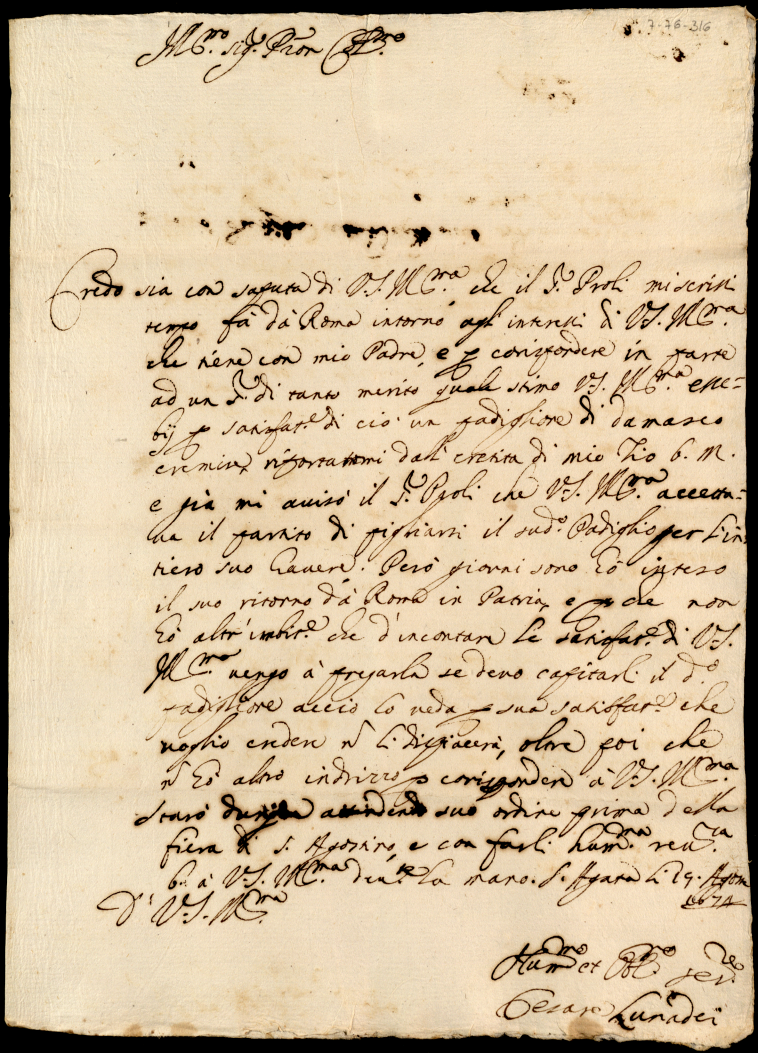 7-76-316
M.ro Sig.r Pron Col.mo
Credo sia con saputa di V.S. M.ra che il S.r Proli mi scrisse
tempo fà dà Roma intorno agl'interessi di V.S. M.ra
che tiene con mio Padre, e p corrispondere in parte
ad un S.r di tanto merito quale stimo V.S. M.ra
p satisfat.e di ciò un padiglione di damasco
cremise, riportatomi dall'eredità di mio Zio b. m.
e già mi avisò il S.r Proli che V.S. M.ra accetta-
va il partito di pigliarsi il sud.o Padiglio per l'in-
tiero suo havere. Però giorni sono hò inteso
il suo ritorno dà Roma in Patria, e p che non
hò altr' che d'incontrare le satisfat.e di V.S.
M.ra vengo à pregarla se devo capitarli il d.o
padiglione acciò lo veda p sua satisfat.e che
voglio credere ñ li dispiacerà, oltre poi che
ñ hò altro indrizzo p corrispondere à V.S. M.ra
Starò dunque attendendo suo ordine prima della
fiera di S. Agostino, e con farli hum.ma rev.za
b. à V.S. M.ra la mano. S. Agata li 19. Agosto
1674
D' V.S. M.ra
Hum.mo et Obl.mo ser.re
Cesare Lunadei